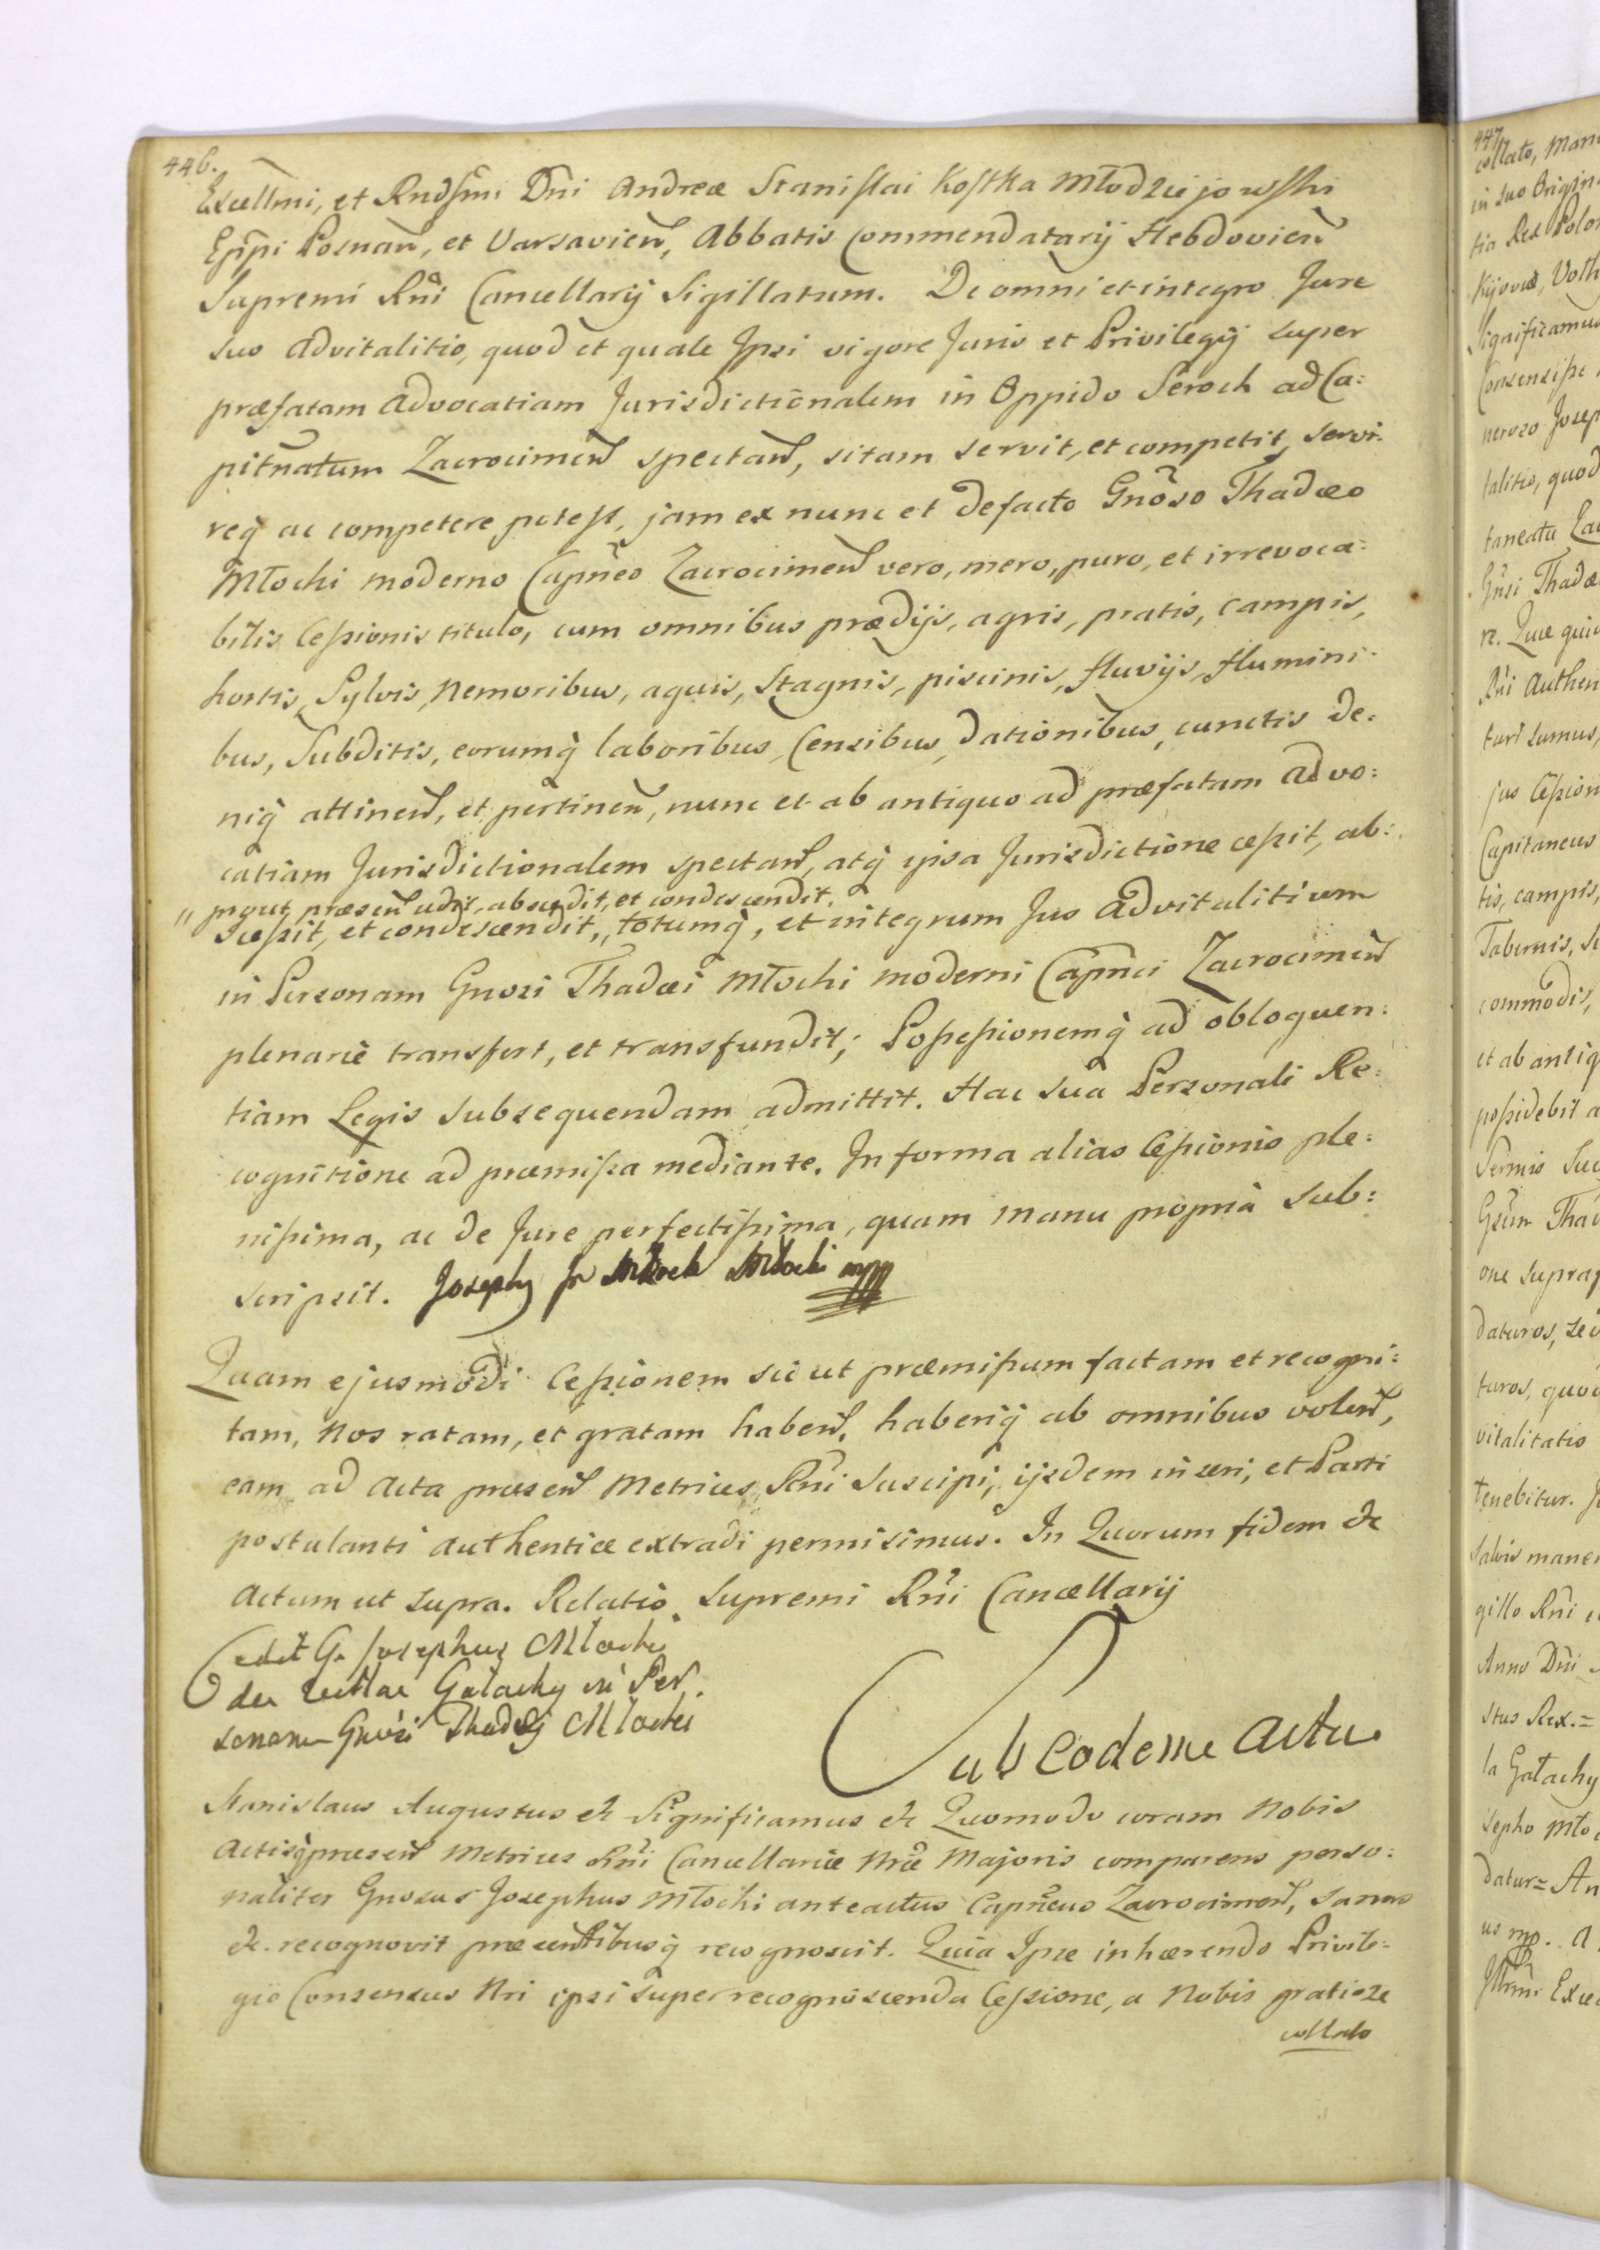 446.
Excellmi, et Rndssmi Dni Andreæ Stanislai Kostka Młodziejowski
Eppi Posnan, et Varsavien, Abbatis Commendatarij Hebdovien
Supremi Rni Cancellarij Sigillatum. De omni et integro Jure
suo advitalitio, quod et quale Ipsi vigore Juris et Privilegij super
præfatam advocatiam Jurisdictionalem in Oppido Seroch ad Ca:
pitnatum Zacrocimen spectan, sitam servit, et competit, servi:
req ac competere potest, jam ex nunc et defacto Gnoso Thadæo
Młocki moderno Capneo Zacrocimen vero, mero, puro, et irrevoca:
bilis Cessionis titulo, cum omnibus prædijs, agris, pratis, campis,
hortis, Sylvis, Nemoribus, aquis, Stagnis, piscinis, fluvijs, flumini:
bus, Subditis, eorumq laboribus, Censibus, dationibus, cunctis de:
niq attinen, et pertinen, nunc et ab antiquo ad præfatam advo:
catiam Jurisdictionalem spectan, atq ipsa Jurisdictione cessit, ab:
" prout præsen cedit, abscedit, et condescendit.
scessit, et condescendit,, totumq, et integrum Jus advitalitium
in Personam Gnosi Thadæi Młocki moderni Capnei Zacrocimen
plenariè transfert, et transfundit; Possessionemq ad obloquen:
tiam Legis subsequendam admittit. Hac suâ Personali Re:
cognitione ad præmissa mediante. In forma alias Cessionis ple:
nissima, ac de Jure perfectissima, quam manu propriâ sub:
scripsit. Joseph Młocki mpp
Quam ejusmodi Cessionem sic ut præmissum factam et recogni:
tam, Nos ratam, et gratam haben, haberiq ab omnibus volen,
eam ad Acta præsen Metrices Rni suscipi, ijsdem inseri, et Parti
postulanti authenticè extradi permisimus. In Quorum fidem &c
Actum ut supra. Relatio Supremi Rni Cancellarij
Cedit G. Josephus Mlocki
de Gałachy in Per
sonam Gnosi Thadæj Mlocki
Sub eodem Actu.
Stanislaus Augustus &c Significamus &c Quomodo coram Nobis
Actisq præsen Metrices Rni Cancellariæ Nræ Majoris comparens perso:
naliter Gnosus Josephus Młocki anteactus Capneus Zacrocimen, sanus
&c. recognovit præsentibusq recognoscit. Quia Ipse inhærendo Privile:
gio Consensus Nri ipsi super recognoscenda Cessione, a Nobis gratiose
collato
447.
collato, Man
in suo Origin
tia Rex Polon
Kijoviæ, Volh
Significamus
Consensisse
neroso Josep
talitio, quod
taneatu Zac
Gnsi Thadæ
re. Quæ qui
Rni Authen
turi sumus,
jus Cession
Capitaneus
tis, campis,
Tabernis, S
commodis,
et ab antiq
possidebit a
Sermis Suc
Gsum Tha
one supra
daturos, se
turos, quod
vitalitatis
tenebitur. J
salvis mane
gillo Rni
Anno Dni
stus Rex. =
la Gałachy
sepho Mło
datur = An
us mp. A
Illrmi Exce